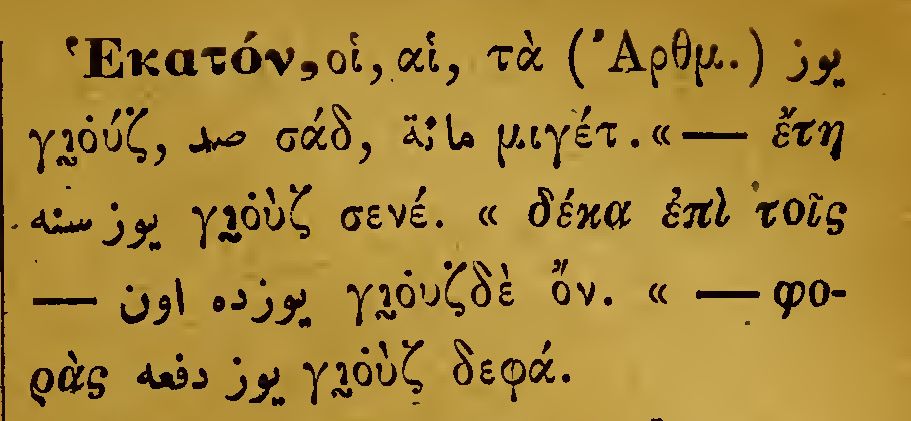 Ἑκατόν, οἱ, αἱ, τὰ (Ἀρθμ.) یوز
γι̰ȯύζ, صد σάδ, مائة μιγέτ. « — ἔτη
یوز سنه γι̰ȯὺζ σενέ. « δέκα ἐπὶ τοῖς
— یوزده اون γι̰ȯυζδὲ ὄν. « — φο-
ρὰς یوز دفعه γι̰ȯὺζ δεφά.